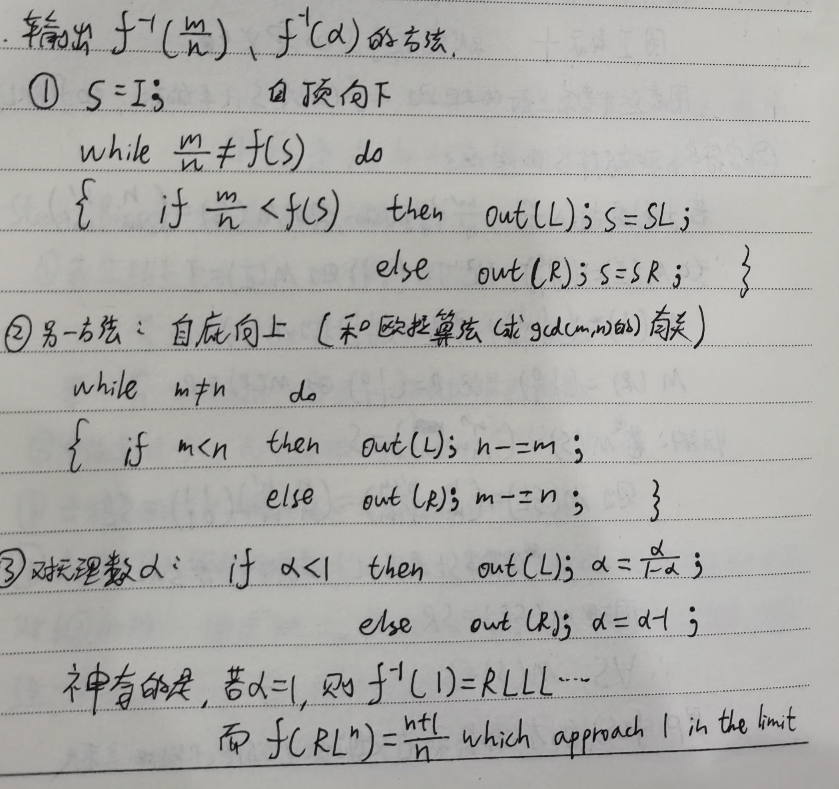 . 输出 f⁻¹(m/n)、f⁻¹(α)的方法.
① S=I; 自顶向下
while m/n ≠ f(S) do
{ if m/n < f(S) then out(L); S=SL;
else out(R); S=SR; }
② 另一方法: 自底向上 (和欧拉算法(求gcd(m,n)的)有关)
while m≠n do
{ if m<n then out(L); n-=m;
else out(R); m-=n; }
③ 对无理数α: if α<1 then out(L); α=α/1-α;
else out(R); α=α-1;
神奇的是, 若α=1, 则 f⁻¹(1)=RLLL…
而 f(RLⁿ)=n+1/n which approach 1 in the limit